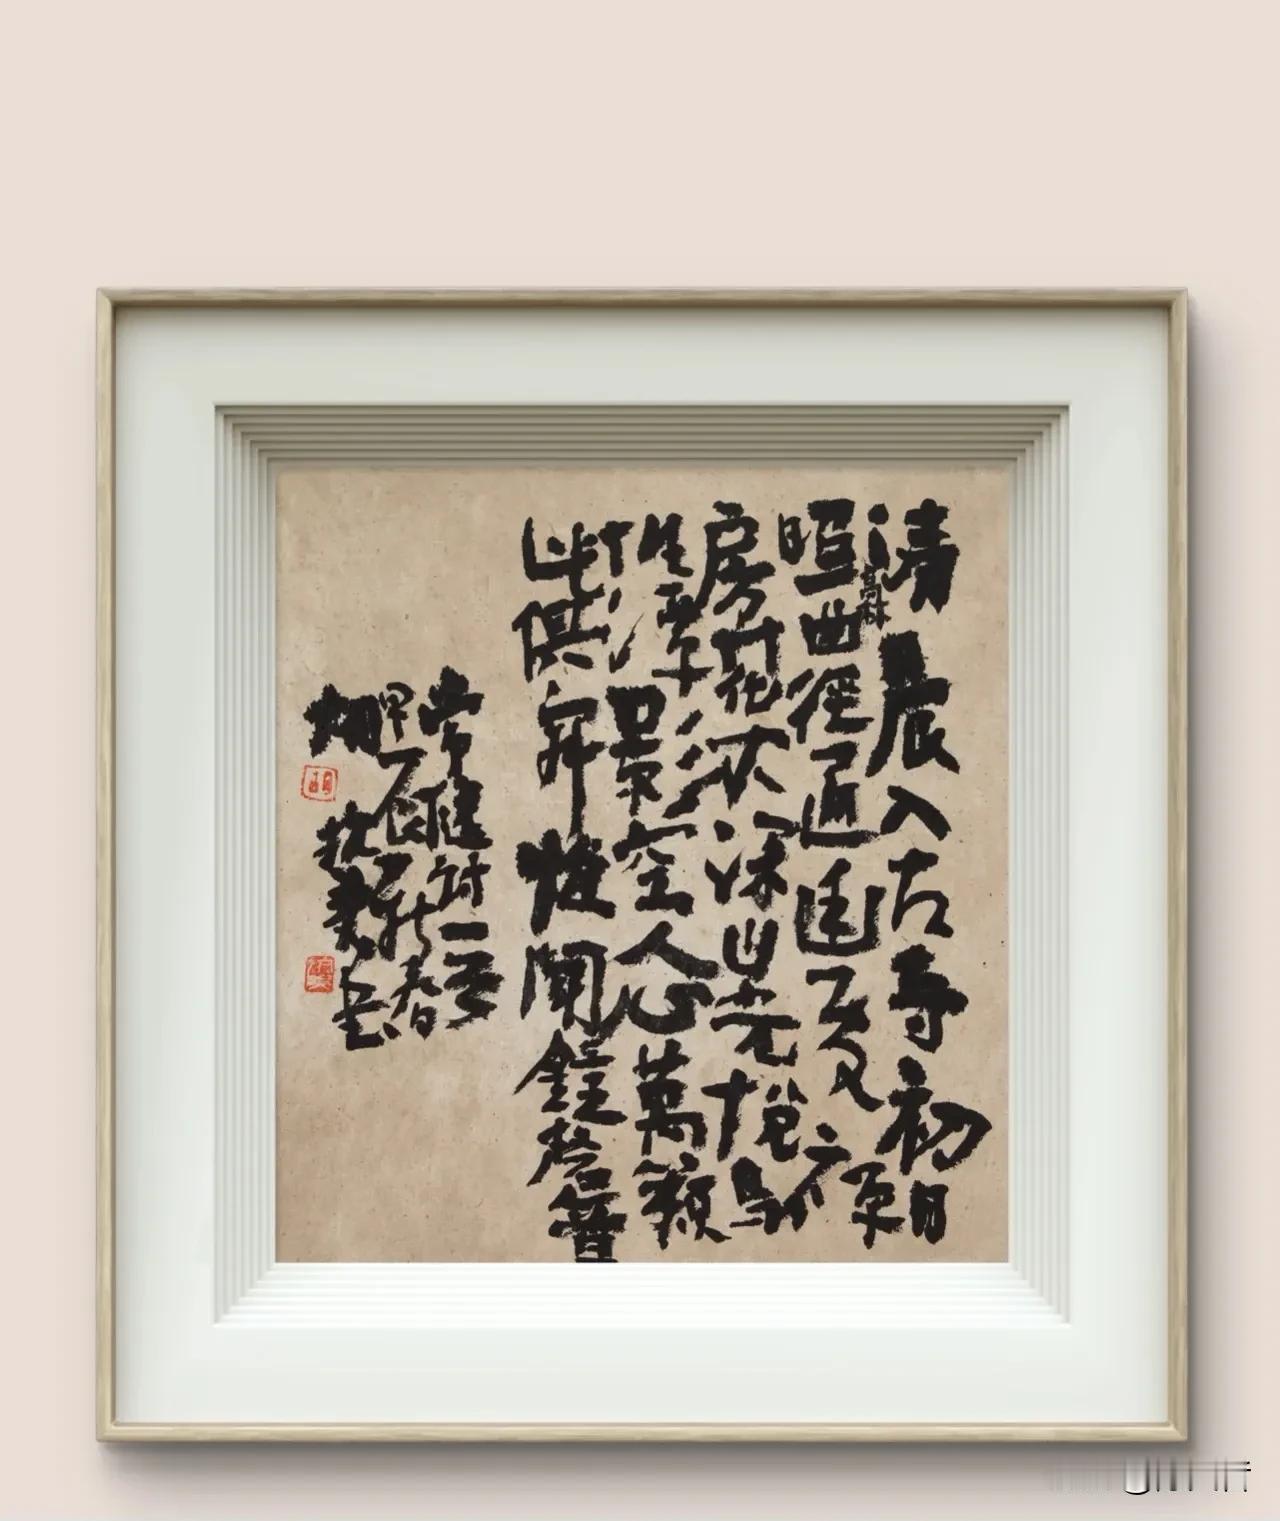 清晨入古寺初日
照高林曲徑通幽處禪
房花木深山光悅鳥
性潭影空人心萬籟
此俱寂惟聞鐘磬音
常建詩一首
甲辰新春
胡抗美書
胡